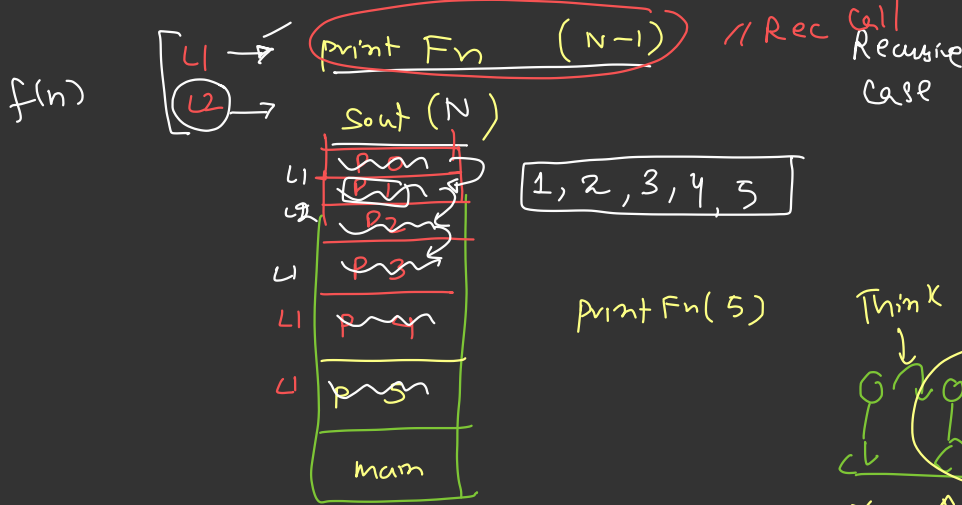 L1 print Fn (N-1) // Rec Call
Recursive
Case
f(n)
L2 Sout (N)
L1 P 0
L2 P 1
P 2
L1 P 3
L1 P 4
L1 P 5
main
1, 2, 3, 4, 5
printFn(5)
Think